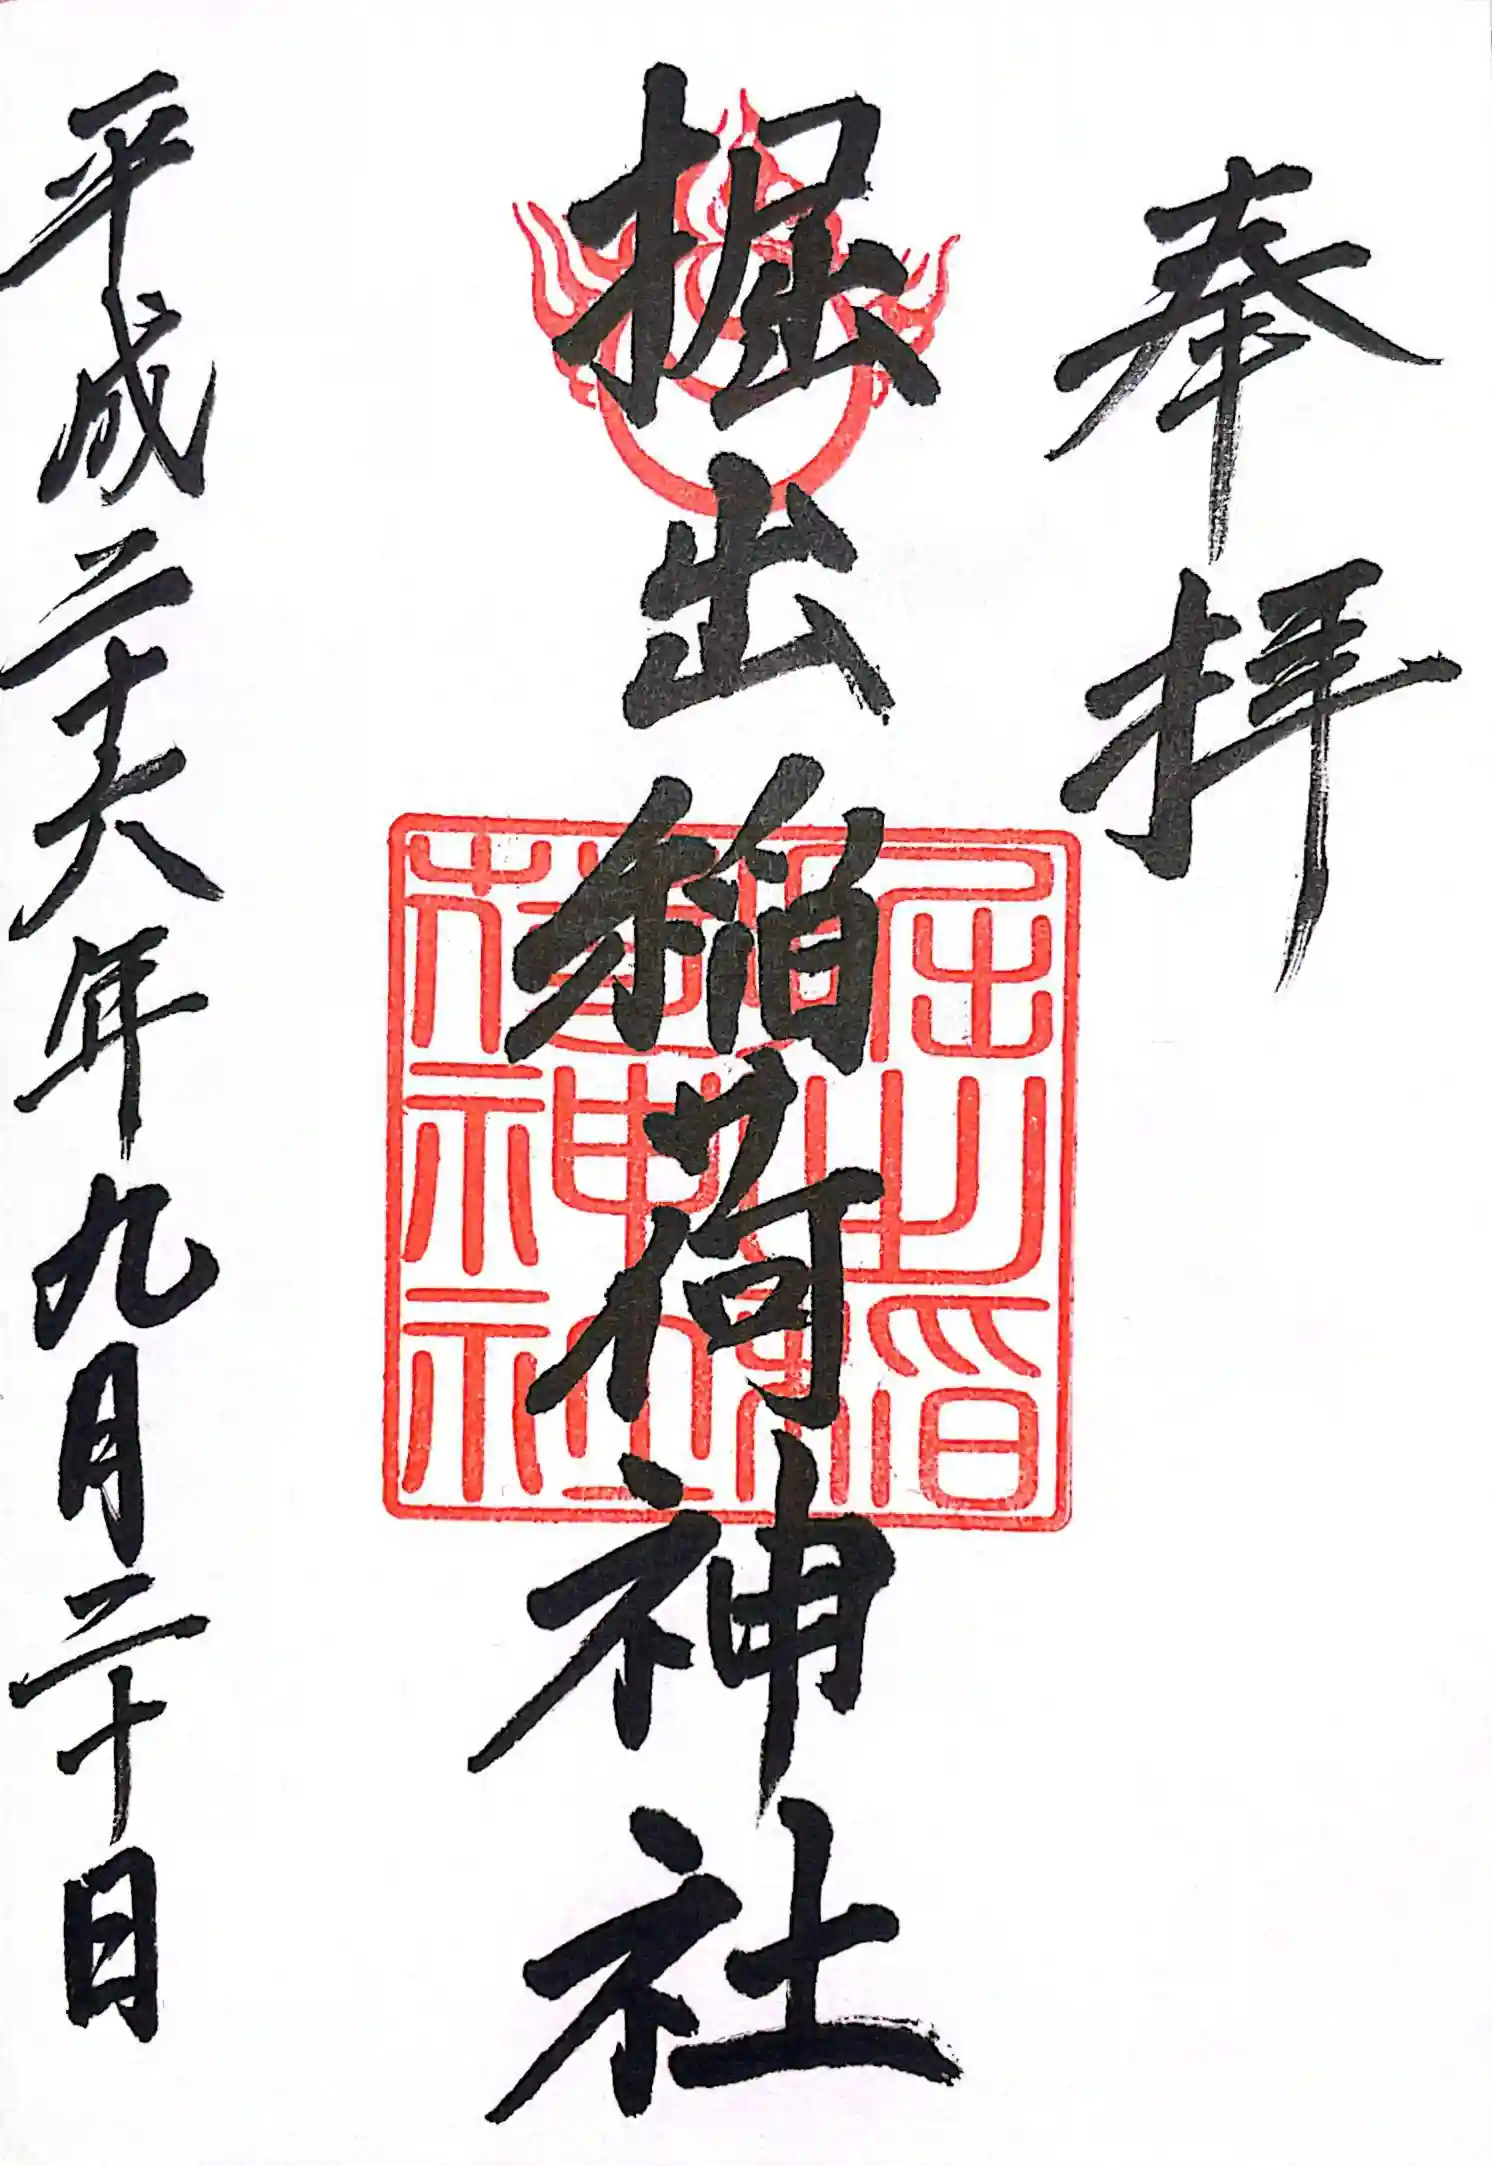 奉拝
掘出稲荷神社
平成二十六年九月二十日
掘出稲
荷神社